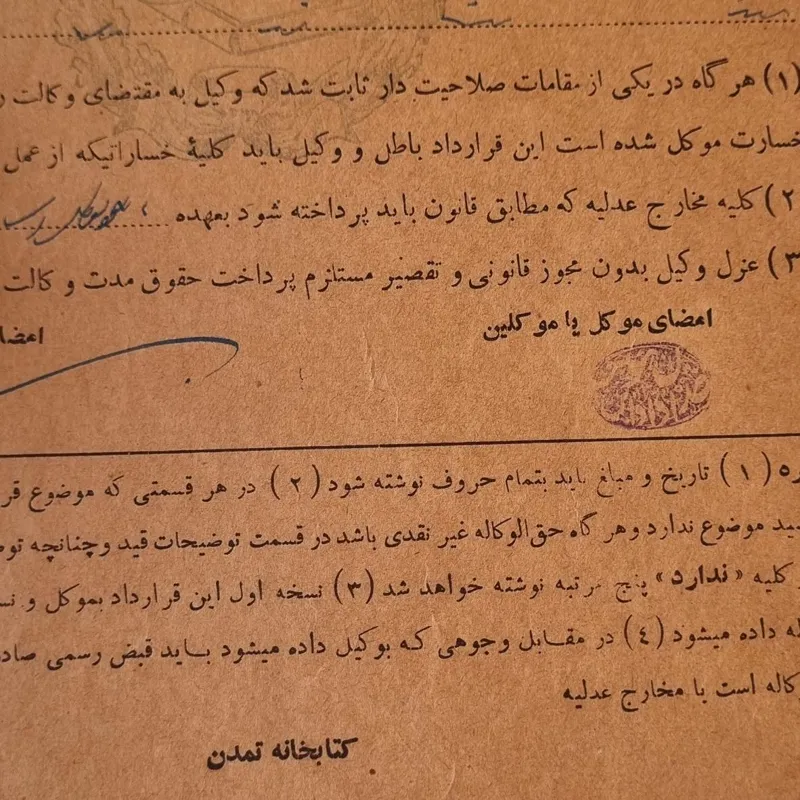 (۱) هر گاه در یکی از مقامات صلاحیت دار ثابت شد که وکیل به مقتضای وکالت ر
خسارت موکل شده است این قرارداد باطل و وکیل باید کلیهٔ خساراتیکه از عمل
۲) کلیه مخارج عدلیه که مطابق قانون باید پرداخته شود بعهده
۳) عزل وکیل بدون مجوز قانونی و تقصیر مستلزم پرداخت حقوق مدت وکالت
امضای موکل یا موکلین
امضا
ره (۱) تاریخ و مبلغ باید بتمام حروف نوشته شود (۲) در هر قسمتی که موضوع قر
سید موضوع ندارد و هر گاه حق‌الوکاله غیر نقدی باشد در قسمت توضیحات قید و چنانچه توض
کلیه «ندارد» پنج مرتبه نوشته خواهد شد (۳) نسخه اول این قرارداد بموکل و نس
له داده میشود (٤) در مقابل وجوهی که بوکیل داده میشود باید قبض رسمی صاد
کاله است با مخارج عدلیه
کتابخانه تمدن